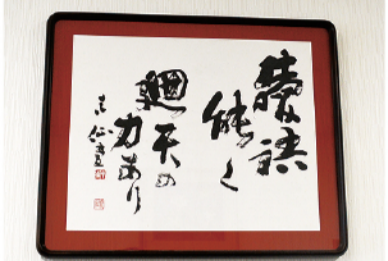 愛語
能く
廻天の
力あり